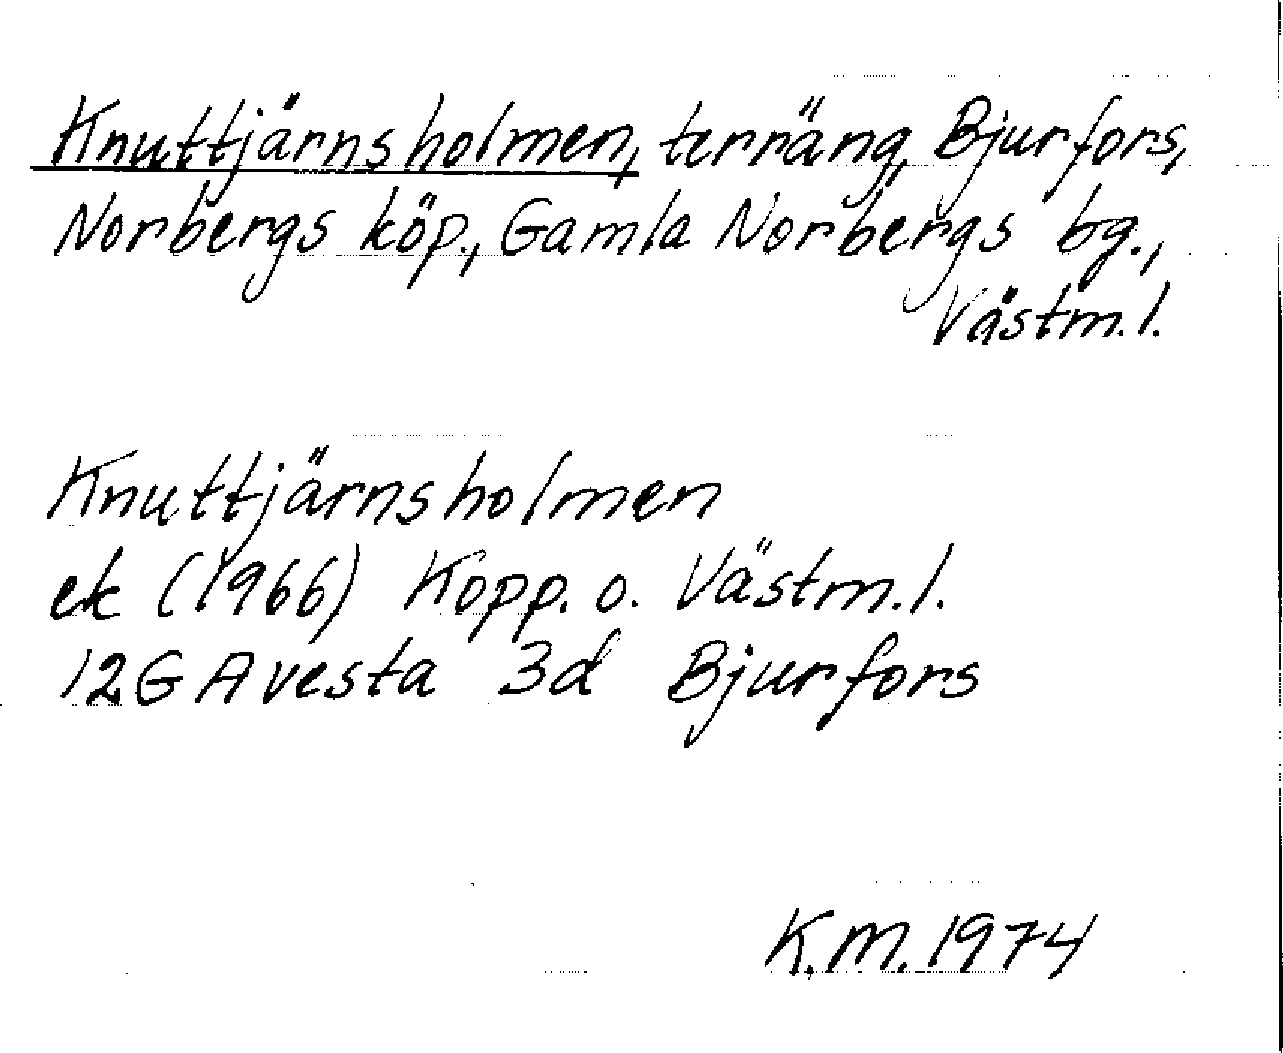 Knuttjärnsholmen, terräng, Bjurfors,
Norbergs köp., Gamla Norbergs bg.,
Västm.l.
Knuttjärnsholmen
ek (1966) Kopp. o. Västm.l.
12G Avesta 3d Bjurfors
K.M. 1974